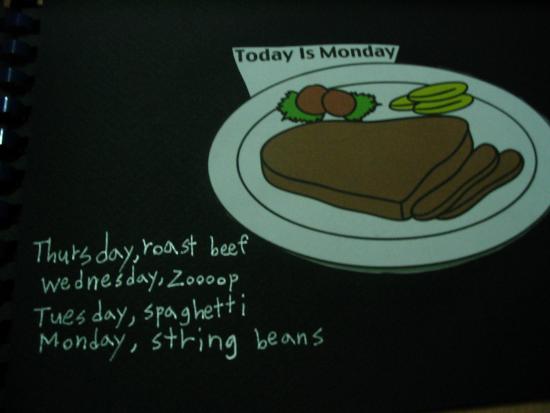 Today Is Monday
Thursday, roast beef
Wednesday, Zoooop
Tuesday, spaghetti
Monday, string beans